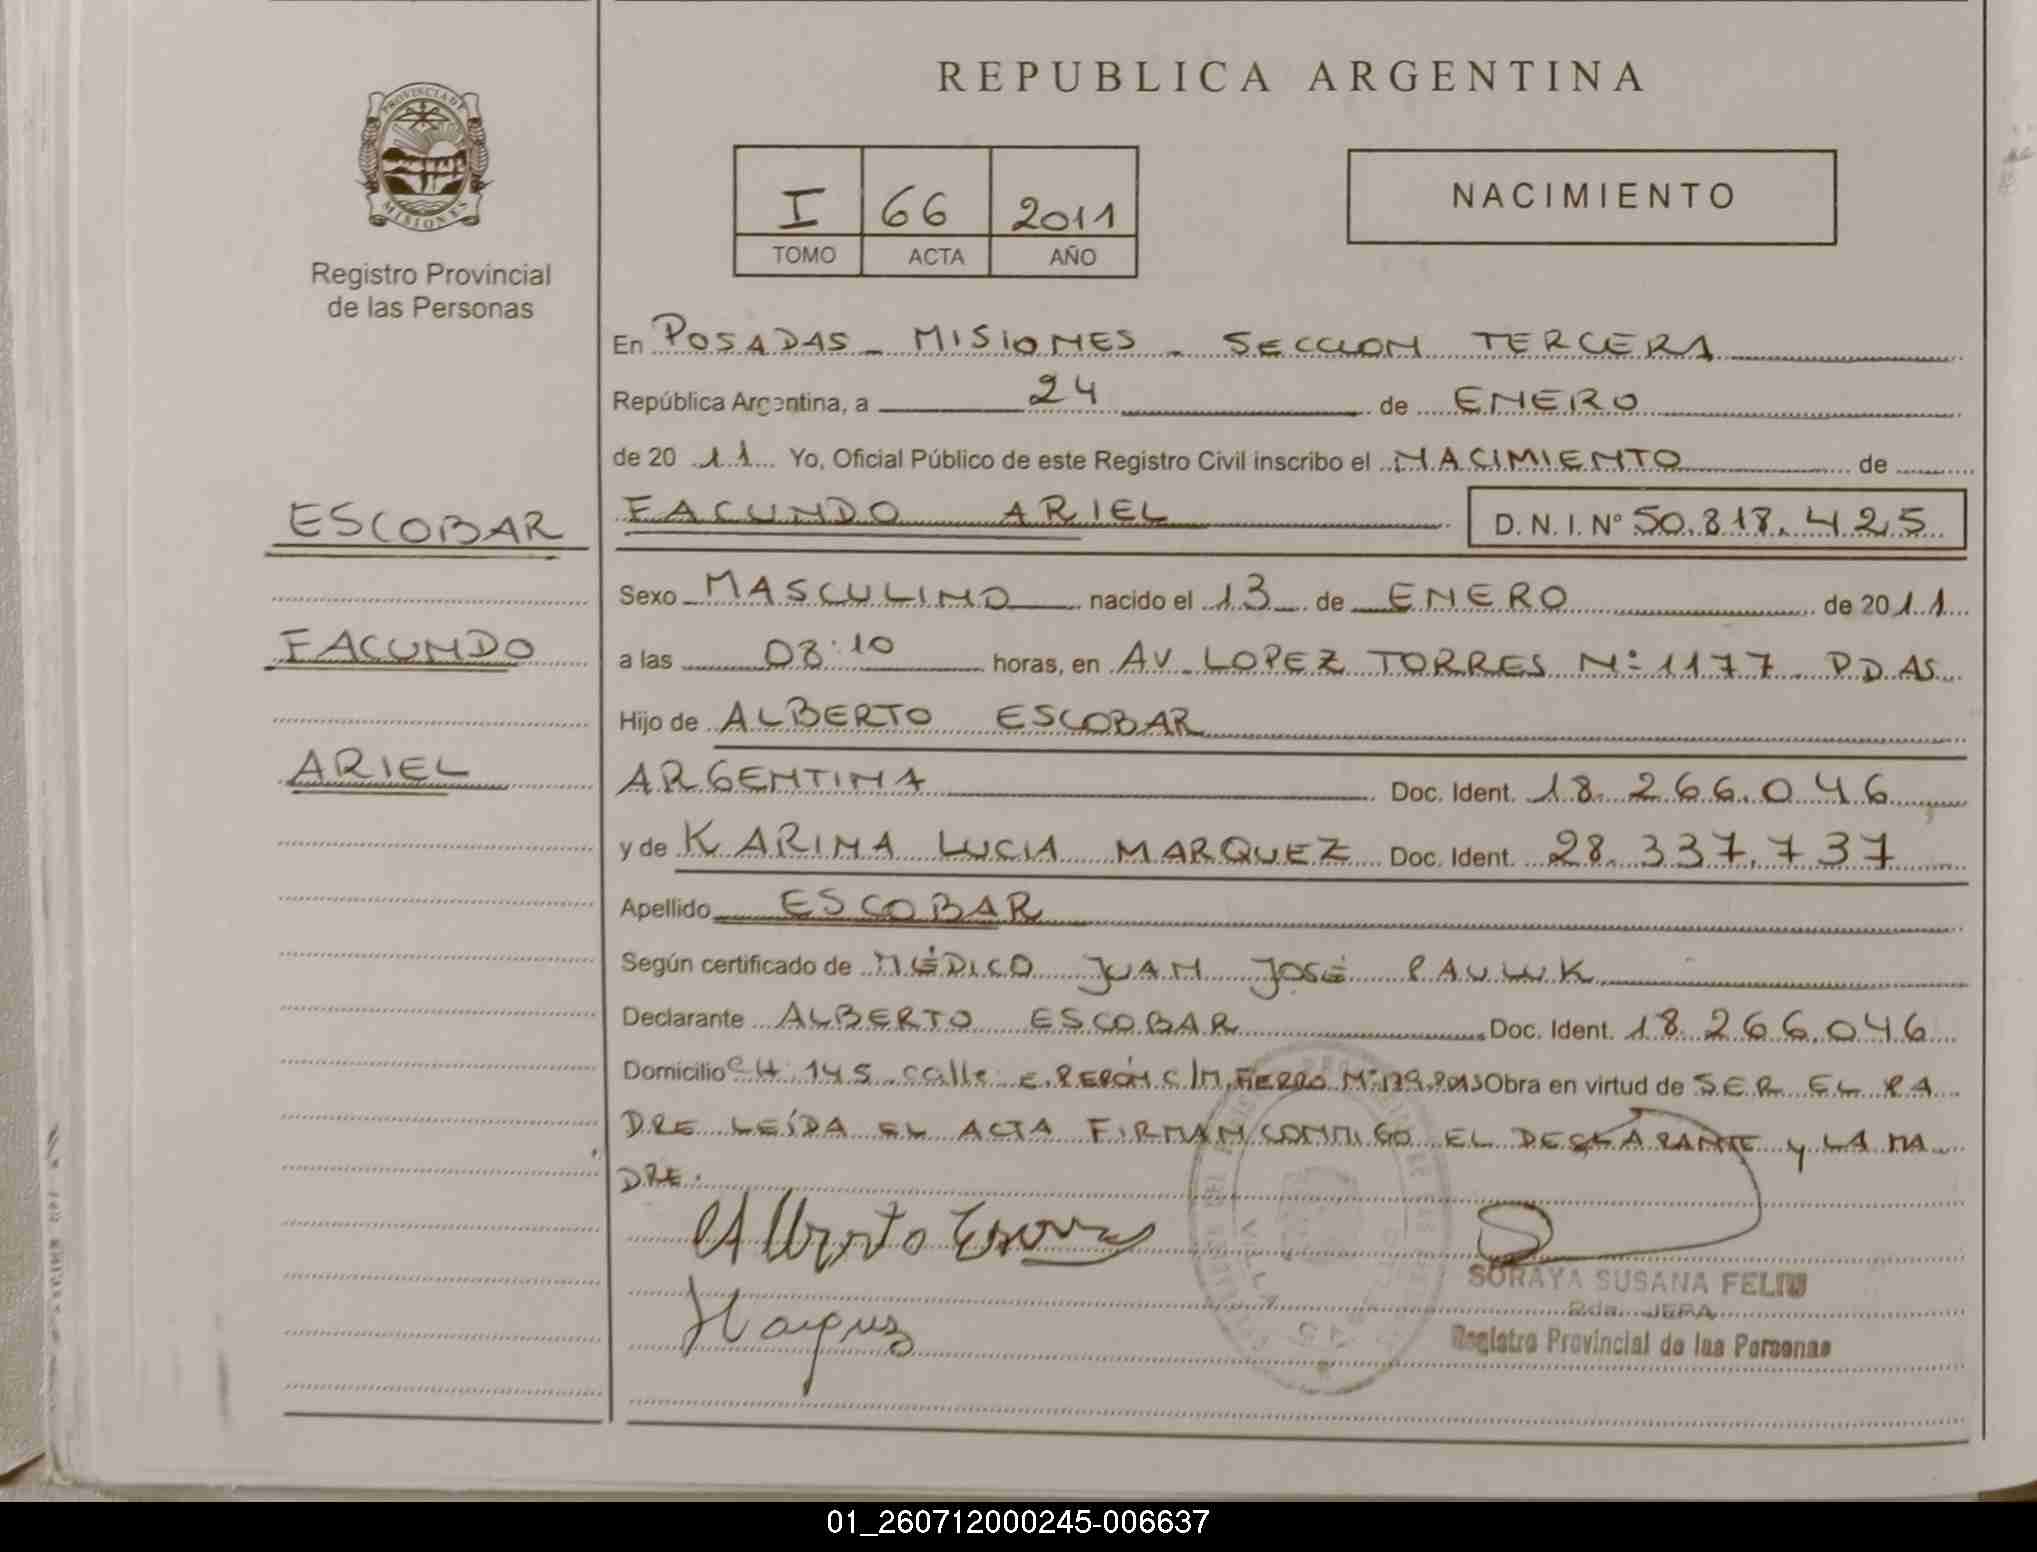 REPUBLICA ARGENTINA
PROVINCIA DE
MISIONES
Registro Provincial
de las Personas
I 66 2011
TOMO ACTA AÑO
NACIMIENTO
En POSADAS - MISIONES - SECCION TERCERA
República Argentina, a 24 de ENERO
de 2011 Yo, Oficial Público de este Registro Civil inscribo el NACIMIENTO de
ESCOBAR
FACUNDO ARIEL D. N. I. N° 50.818.425
Sexo MASCULINO nacido el 13 de ENERO de 2011
FACUNDO
a las 08:10 horas, en AV. LOPEZ TORRES N° 1177 PDAS
Hijo de ALBERTO ESCOBAR
ARIEL
ARGENTINA Doc. Ident. 18.266.046
y de KARINA LUCIA MARQUEZ Doc. Ident. 28.337.737
Apellido ESCOBAR
Según certificado de MÉDICO JUAN JOSÉ PAWLUK
Declarante ALBERTO ESCOBAR Doc. Ident. 18.266.046
Domicilio CH 145 calle E. PERÓN C/M. FIERRO Obra en virtud de SER EL PA
DRE LEÍDA EL ACTA FIRMAN CONMIGO EL DECLARANTE y LA MA
DRE.
Alberto Escobar
SORAYA SUSANA FELIU
Registro Provincial de las Personas
01_260712000245-006637